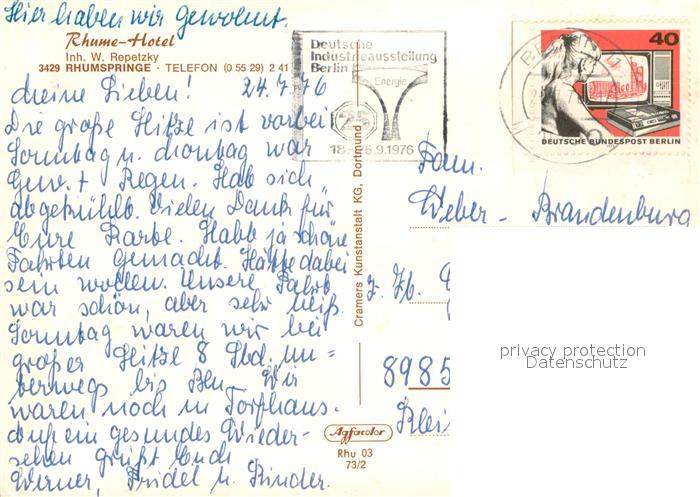 Hier haben wir gewohnt.
Rhume-Hotel
Inh. W. Repetzky
3429 RHUMSPRINGE · TELEFON (0 55 29) 2 41
Meine Lieben! 24.7.76
Die große Hitze ist vorbei
Sonntag u. Montag war
Gew. + Regen. Hab sich
abgekühlt. Vielen Dank für
Eure Karte. Habt ja schöne
Fahrten gemacht. Hätte dabei
sein wollen. Unsere Fahrt
war schön, aber sehr heiß.
Sonntag waren wir bei
großer Hitze 8 Std. un=
terwegs bis Bln. Wir
waren noch in Torfhaus.
Auf ein gesundes Wieder-
sehen grüßt Euch
Werner, Fridel u. Kinder.
Deutsche
Industrieausstellung
Berlin
Energie
25
1976
40
DEUTSCHE BUNDESPOST BERLIN
Cramers Kunstanstalt KG, Dortmund
Fam.
Weber - Brandenburg
z. Zt.
8985
Agfacolor
Rhu 03
73/2
privacy protection
Datenschutz